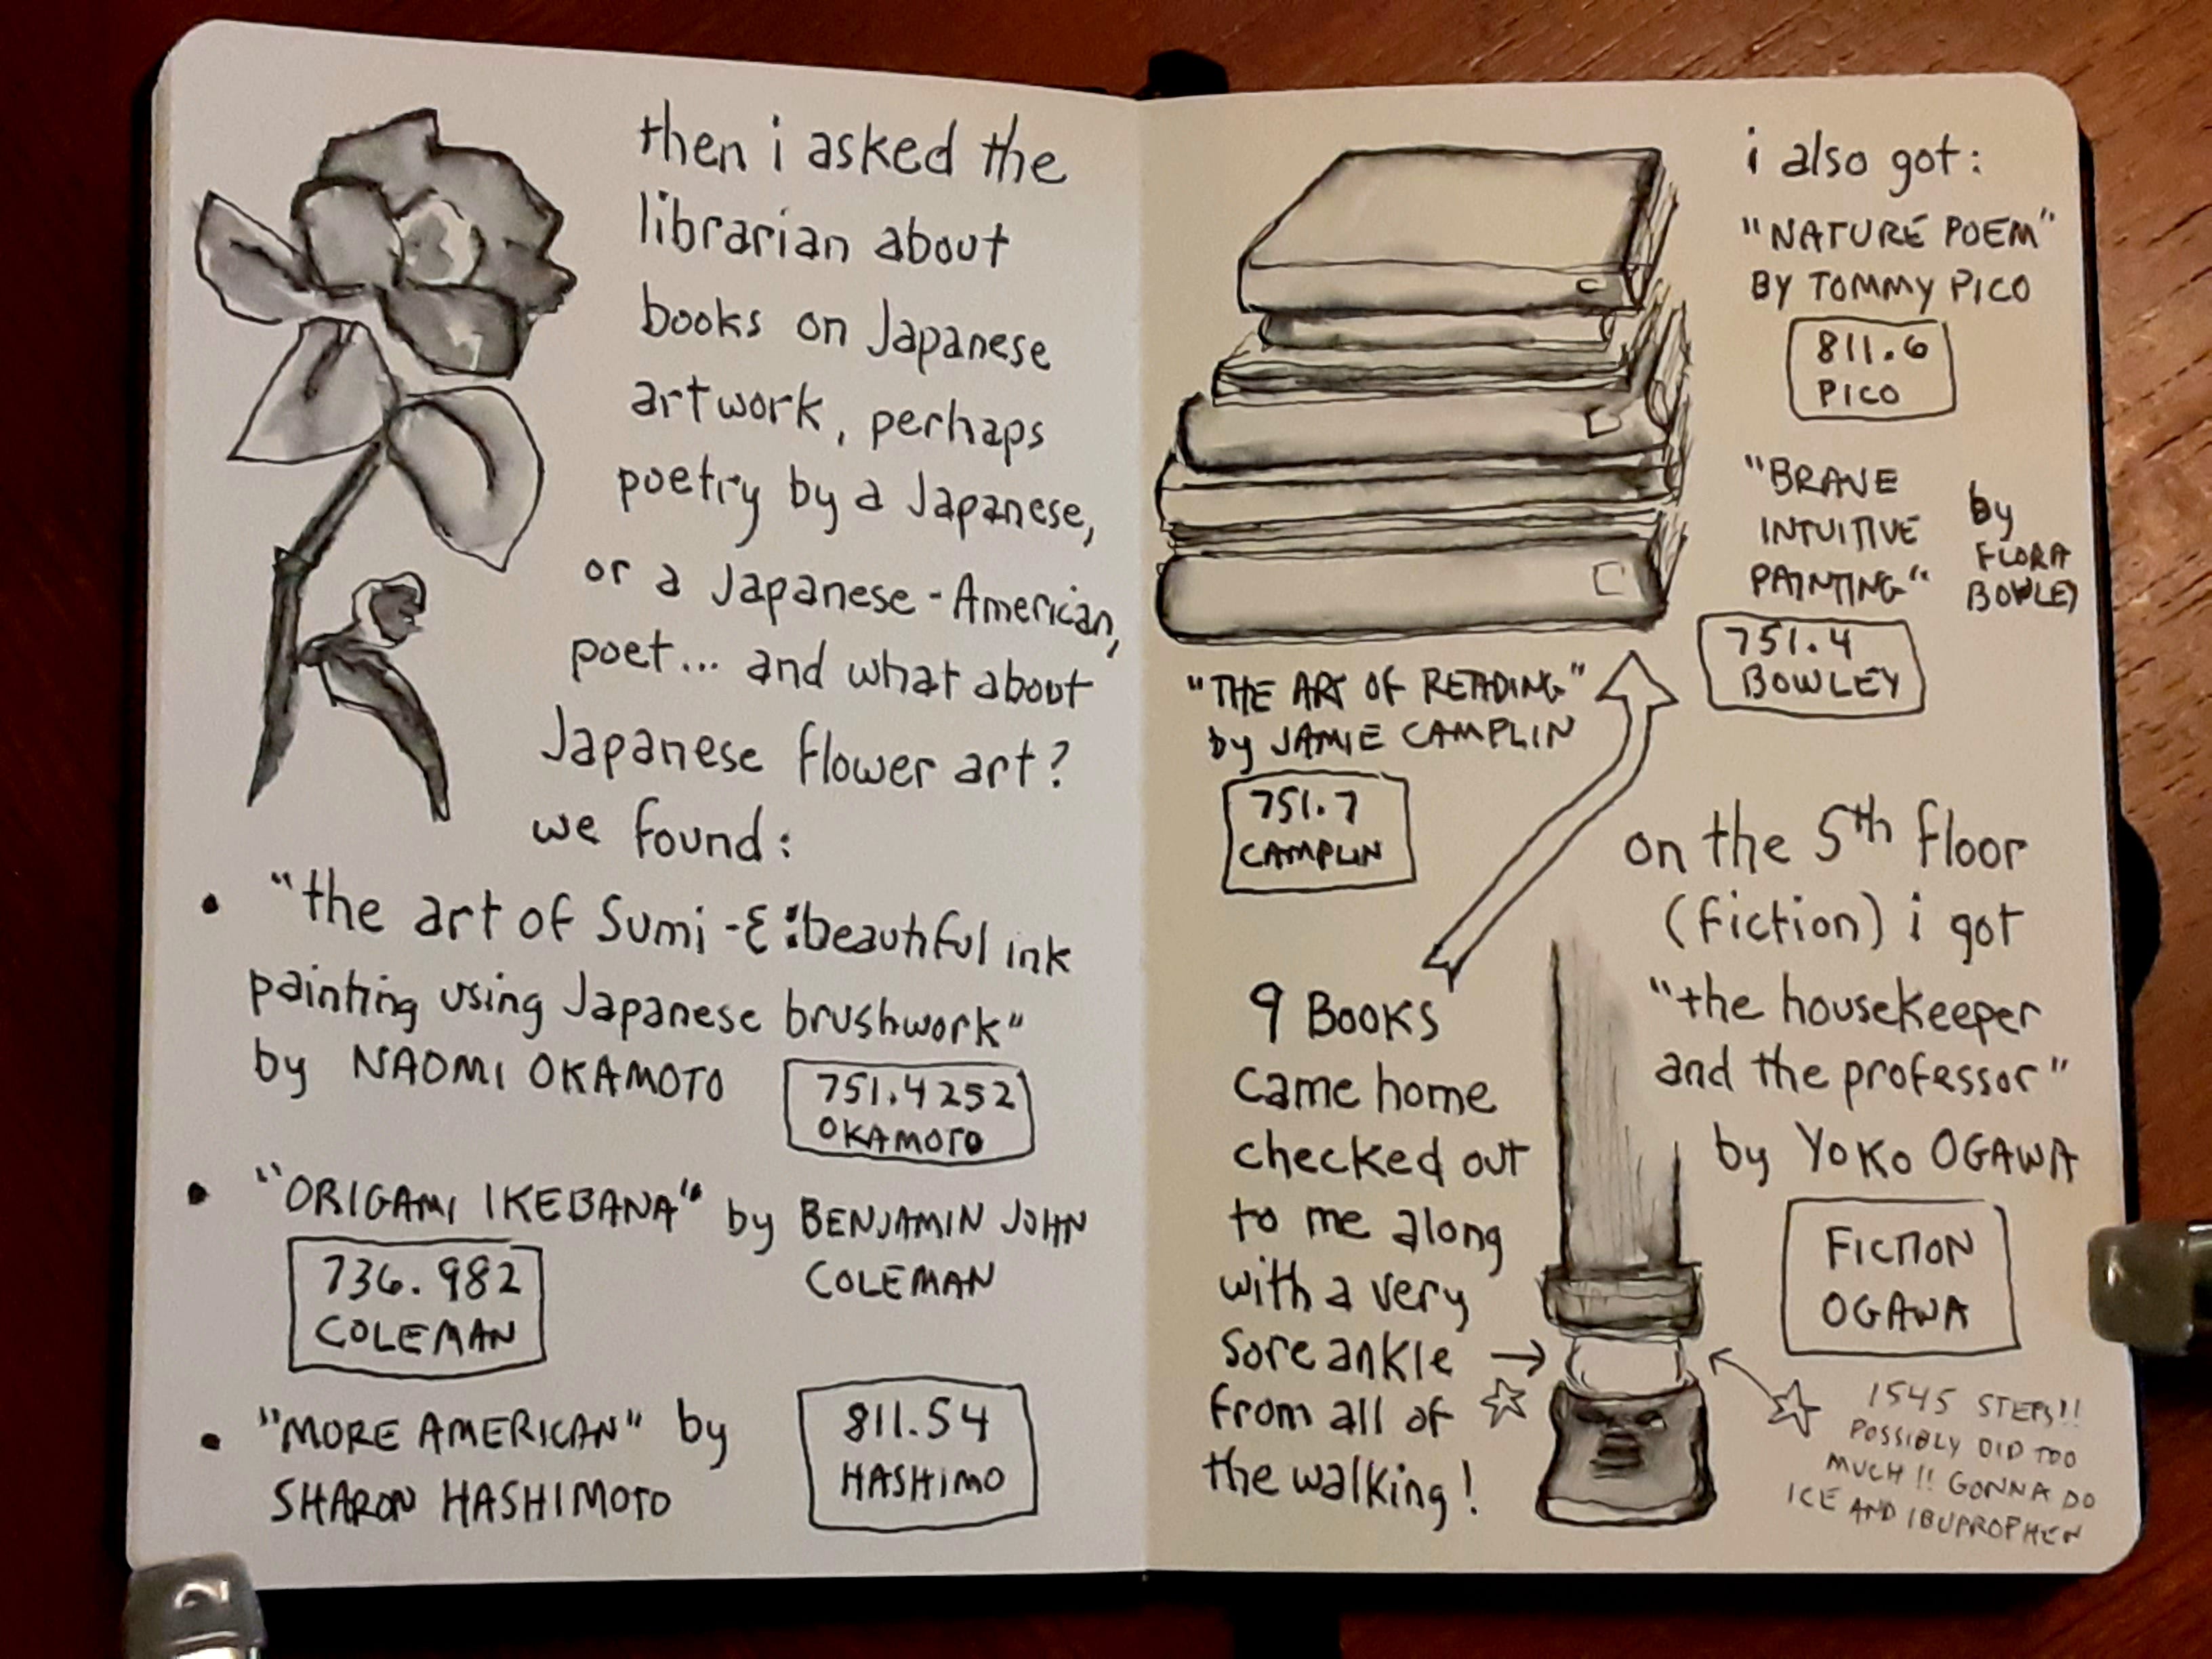 then i asked the
librarian about
books on Japanese
artwork, perhaps
poetry by a Japanese,
or a Japanese-American,
poet... and what about
Japanese flower art?
we found:
• "the art of Sumi-E: beautiful ink
painting using Japanese brushwork"
by NAOMI OKAMOTO
751.4252
OKAMOTO
• "ORIGAMI IKEBANA" by BENJAMIN JOHN
COLEMAN
736.982
COLEMAN
• "MORE AMERICAN" by
SHARON HASHIMOTO
811.54
HASHIMO
i also got:
"NATURE POEM"
BY TOMMY PICO
811.6
PICO
"BRAVE
INTUITIVE
PAINTING"
by
FLORA
BOWLEY
751.4
BOWLEY
"THE ART OF READING"
by JAMIE CAMPLIN
751.7
CAMPLIN
on the 5th floor
(fiction) i got
"the housekeeper
and the professor"
by YOKO OGAWA
FICTION
OGAWA
9 BOOKS
came home
checked out
to me along
with a very
sore ankle
from all of
the walking!
1545 STEPS!!
POSSIBLY DID TOO
MUCH!! GONNA DO
ICE AND IBUPROPHEN